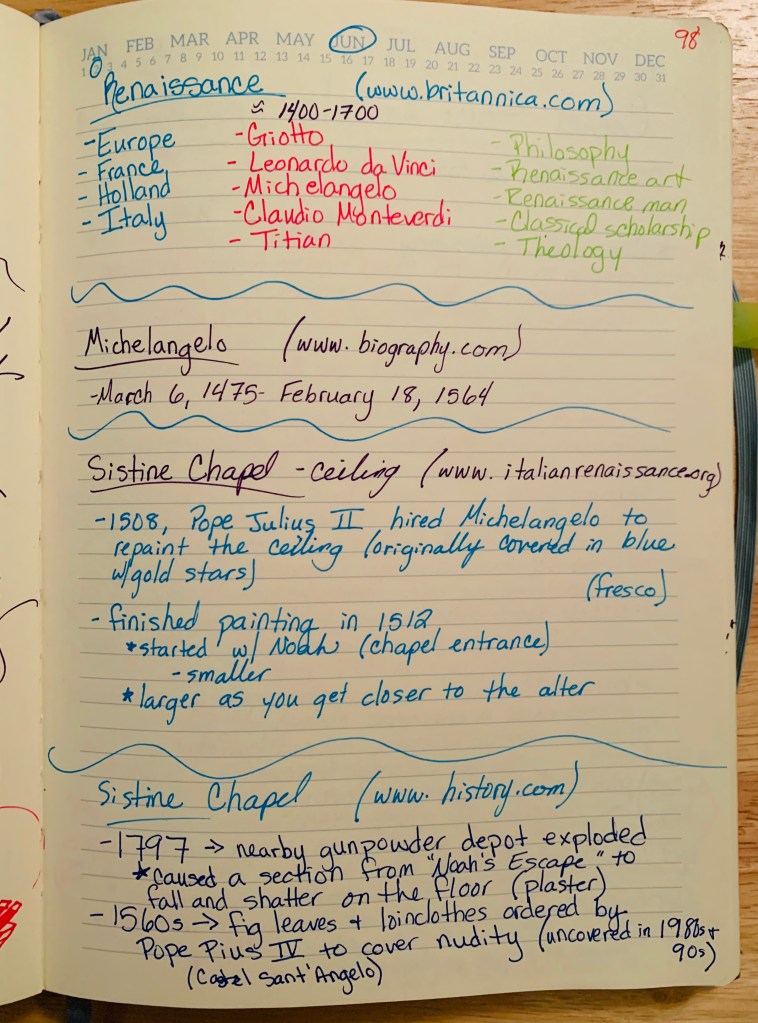 98
JAN FEB MAR APR MAY JUN JUL AUG SEP OCT NOV DEC
1 3 4 5 6 7 8 9 10 11 12 13 14 15 16 17 18 19 20 21 22 23 24 25 26 27 28 29 30 31
Renaissance (www.britannica.com)
≈ 1400-1700
-Europe
- France
- Holland
- Italy
-Giotto
- Leonardo da Vinci
-Michelangelo
-Claudio Monteverdi
- Titian
- Philosophy
-Renaissance art
-Renaissance man
-Classical scholarship
- Theology
Michelangelo (www.biography.com)
-March 6, 1475- February 18, 1564
Sistine Chapel -ceiling (www.italianrenaissance.org)
-1508, Pope Julius II hired Michelangelo to
repaint the ceiling (originally covered in blue
w/gold stars)
(fresco)
- finished painting in 1512
*started w/ Noah (chapel entrance)
-smaller
*larger as you get closer to the alter
Sistine Chapel (www.history.com)
-1797 → nearby gunpowder depot exploded
*caused a section from "Noah's Escape" to
fall and shatter on the floor (plaster)
- 1560s → fig leaves + loinclothes ordered by
Pope Pius IV to cover nudity (uncovered in 1980s +
90s)
(Castel Sant'Angelo)